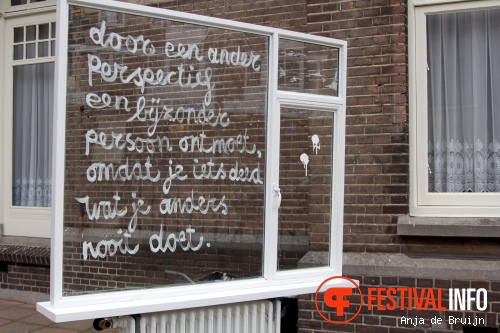 door een ander
perspectief
een bijzonder
persoon ontmoet,
omdat je iets deed
wat je anders
nooit doet.
FESTIVALINFO
Anja de Bruijn